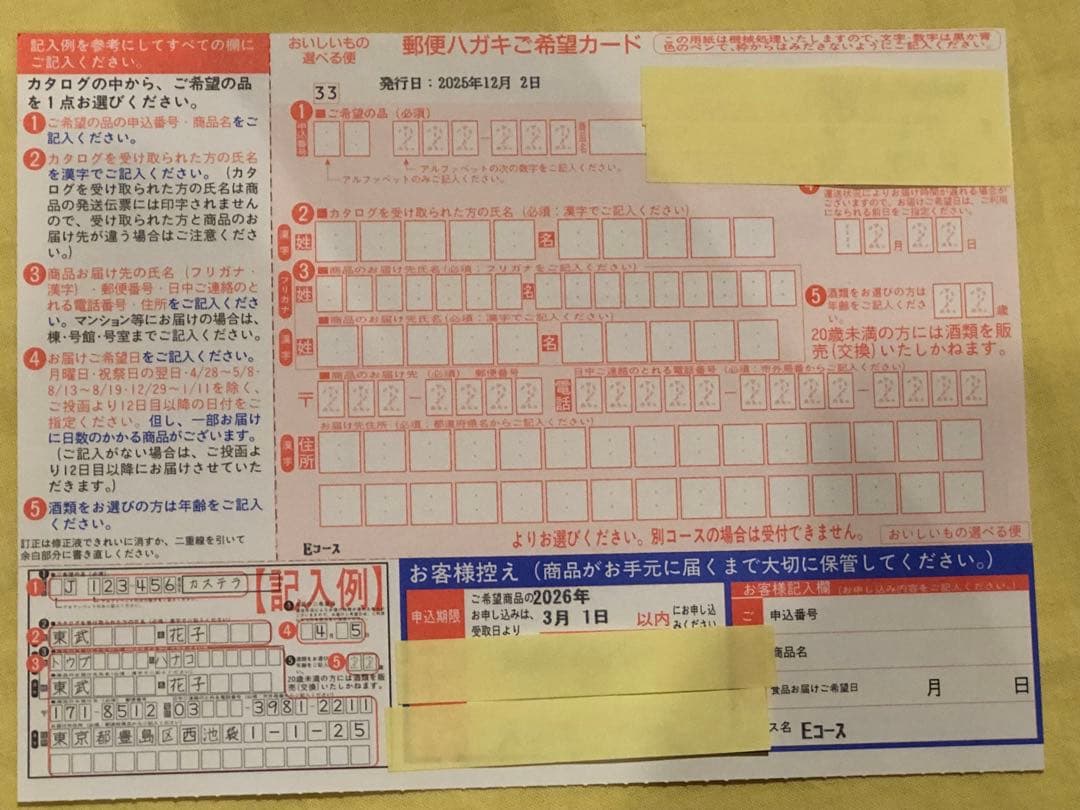 記入例を参考にしてすべての欄に
ご記入ください。
カタログの中から、ご希望の品
を1点お選びください。
1 ご希望の品の申込番号・商品名をご
記入ください。
2 カタログを受け取られた方の氏名
を漢字でご記入ください。(カタ
ログを受け取られた方の氏名は商
品の発送伝票には印字されません
ので、受け取られた方と商品のお
届け先が違う場合はご注意くださ
い。)
3 商品お届け先の氏名(フリガナ・
漢字)・郵便番号・日中ご連絡のと
れる電話番号・住所をご記入くださ
い。マンション等にお届けの場合は、
棟・号館・号室までご記入ください。
4 お届けご希望日をご記入ください。
月曜日・祝祭日の翌日・4/28~5/8・
8/13~8/19・12/29~1/11を除く、
ご投函より12日目以降の日付をご
指定ください。但し、一部お届け
に日数のかかる商品がございます。
(ご記入がない場合は、ご投函よ
り12日目以降にお届けさせていた
だきます。)
5 酒類をお選びの方は年齢をご記入
ください。
訂正は修正液できれいに消すか、二重線を引いて
余白部分に書き直しください。
おいしいもの
選べる便
郵便ハガキご希望カード
この用紙は機械処理いたしますので、文字・数字は黒か青
色のペンで、枠からはみださないようにご記入ください。
33
発行日:2025年12月 2日
1 ■ご希望の品(必須)
申込番号
商品名
アルファベットの次の数字をご記入ください。
アルファベットのみご記入ください。
2 ■カタログを受け取られた方の氏名(必須:漢字でご記入ください)
漢字 姓 名
3 ■商品のお届け先氏名(必須:フリガナをご記入ください)
フリガナ 姓 名
■商品のお届け先氏名(必須:漢字でご記入ください)
漢字 姓 名
4
運送状況によりお届け時間が遅れる場合が
ございますので、お届けご希望日は、ご利用
になられる前日をご指定ください。
月 日
5 酒類をお選びの方は
年齢をご記入くださ
い。
歳
20歳未満の方には酒類を販
売(交換)いたしかねます。
■商品のお届け先(必須) 郵便番号
〒
日中ご連絡のとれる電話番号(必須:市外局番からご記入ください)
電話
お届け先住所(必須:都道府県名からご記入ください)
漢字 住所
よりお選びください。別コースの場合は受付できません。
おいしいもの選べる便
Eコース
【記入例】
1 J 123-456 カステラ
2 東武 花子
3 トウブ ハナコ
東武 花子
4 4 5
5 22
20歳未満の方には酒類を販
売(交換)いたしかねます。
〒171-8512 03 -3981-2211
東京都豊島区西池袋1-1-25
お客様控え(商品がお手元に届くまで大切に保管してください。)
申込期限
ご希望商品の2026年
お申し込みは、3月 1日 以内にお申し込
受取日より みください
お客様記入欄(お申し込み内容をご記入ください。)
ご
申込番号
商品名
食品お届けご希望日 月 日
ス名 Eコース